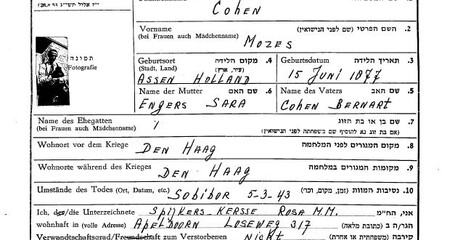 Cohen
Vorname
(bei Frauen auch Mädchenname)
Mozes
2. השם הפרטי (שם לפני הנישואין)
תמונה
Fotografie
Geburtsort
(Stadt, Land)
4. מקום הלידה
(עיר, ארץ)
Assen Holland
Geburtsdatum
3. תאריך הלידה
15 Juni 1877
Name der Mutter
6. שם האם
Engers Sara
Name des Vaters
5. שם האב
Cohen Bernart
Name des Ehegatten
(bei Frauen auch Mädchenname)
/
7. שם בן או בת הזוג
Wohnort vor dem Kriege
Den Haag
8. מקום המגורים לפני המלחמה
Wohnorte während des Krieges
Den Haag
9. מקומות המגורים במלחמה
Umstände des Todes (Ort, Datum, etc.)
Sobibor 5-3-43
10. נסיבות המוות (זמן, מקום, וכו')
Ich, der/die Unterzeichnete
Spijkers-Kersse Rosa M.M.
אני, הח"מ
wohnhaft in (volle Adresse)
Apeldoorn Loseweg 317
הגר/ה ב (כתובת מלאה)
Verwandtschaftsgrad/Freundschaft zum Verstorbenen
Nicht